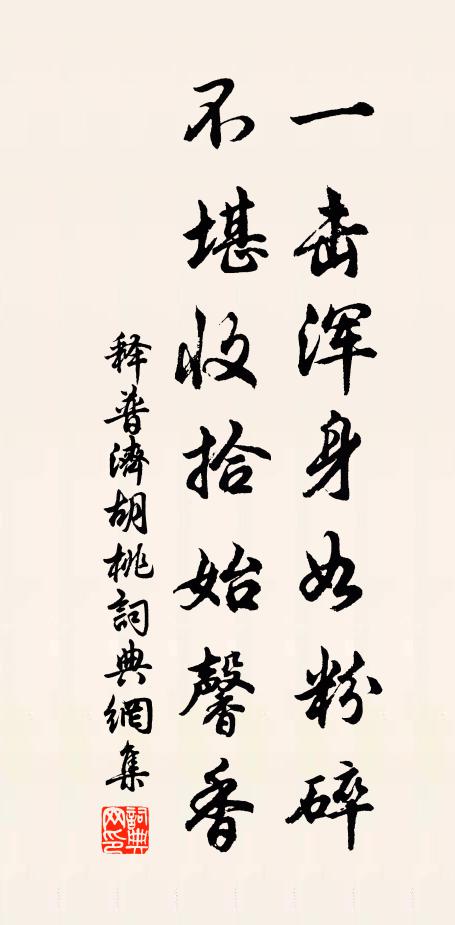 一击浑身如粉碎
不堪收拾始馨香
释普濟胡桃詞典網集
詞典网印